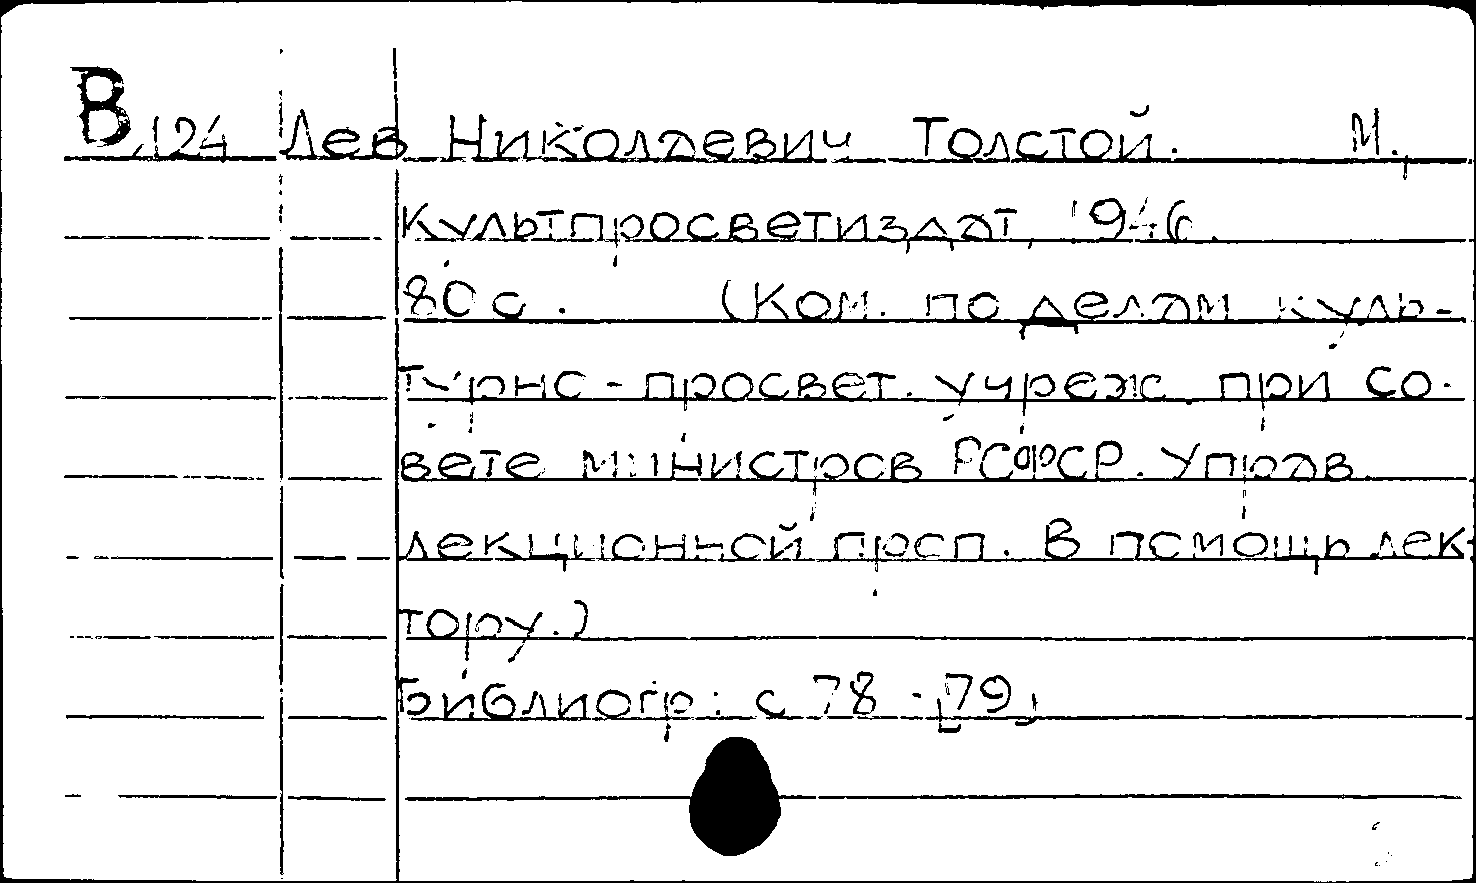 В.124 Лев Николаевич Толстой. М.,
Культпросветиздат, 1946.
80 с. (Ком. по делам куль-
турно-просвет. учреж. при Со-
вете министров РСФСР. Управ.
лекционной проп. В помощь лек-
тору.)
Библиогр: с 78 - [79]